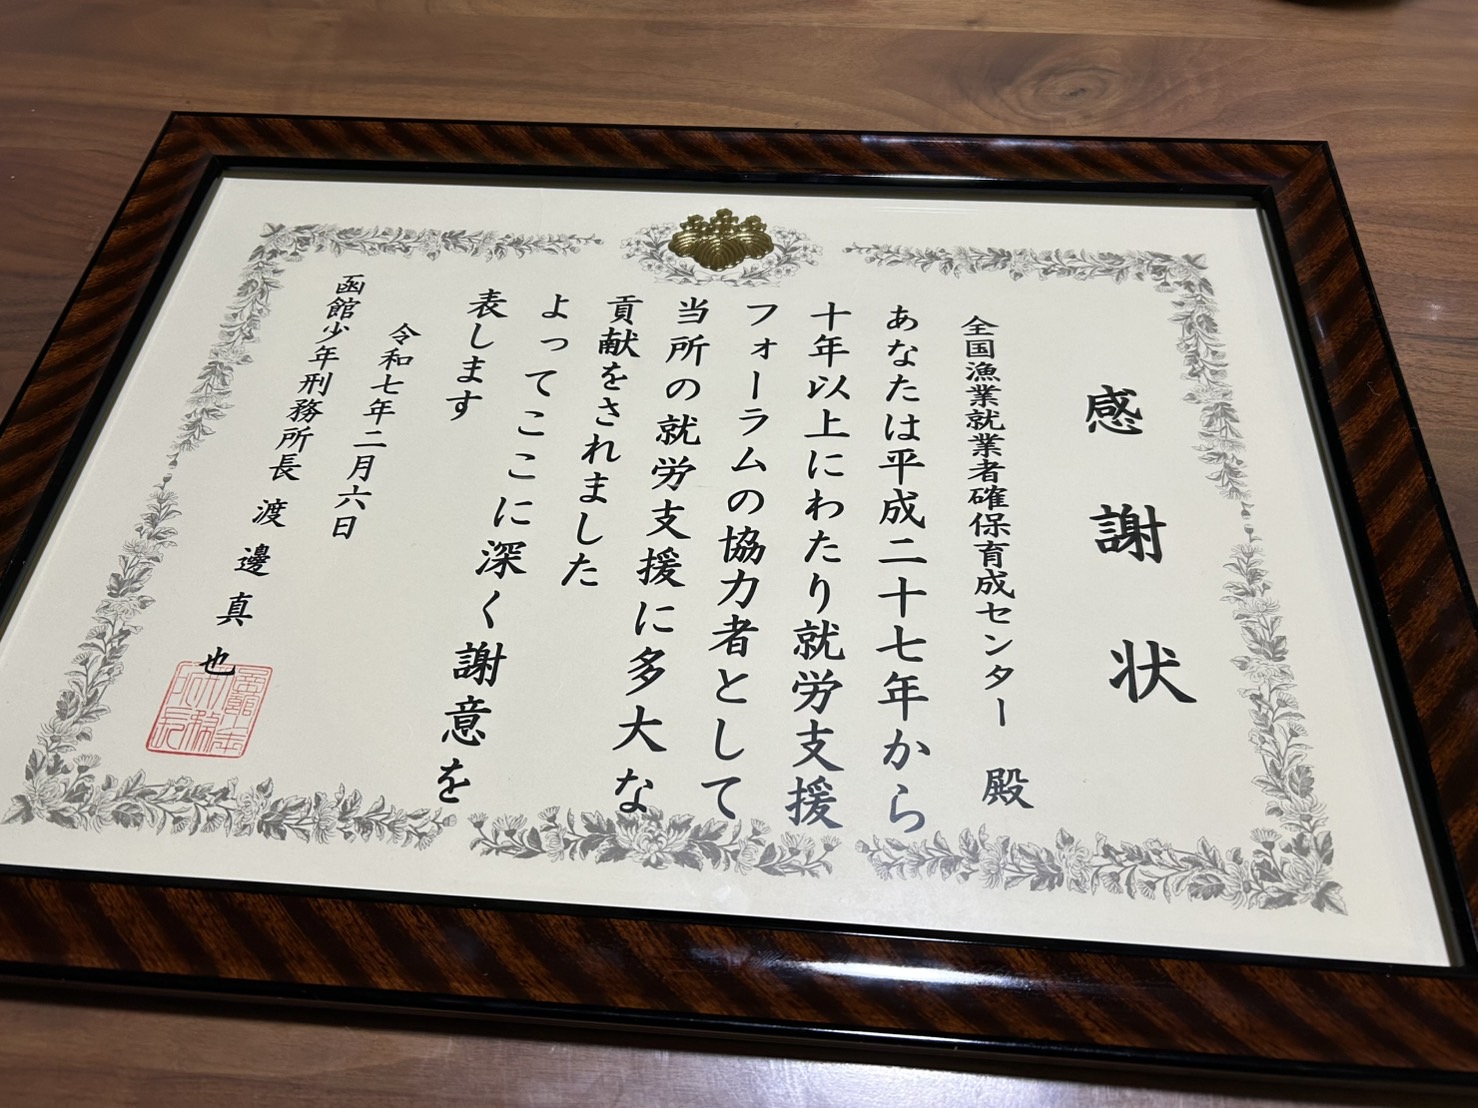 感謝状
全国漁業就業者確保育成センター 殿
あなたは平成二十七年から
十年以上にわたり就労支援
フォーラムの協力者として
当所の就労支援に多大な
貢献をされました
よってここに深く謝意を
表します
令和七年二月六日
函館少年刑務所長 渡邊真也